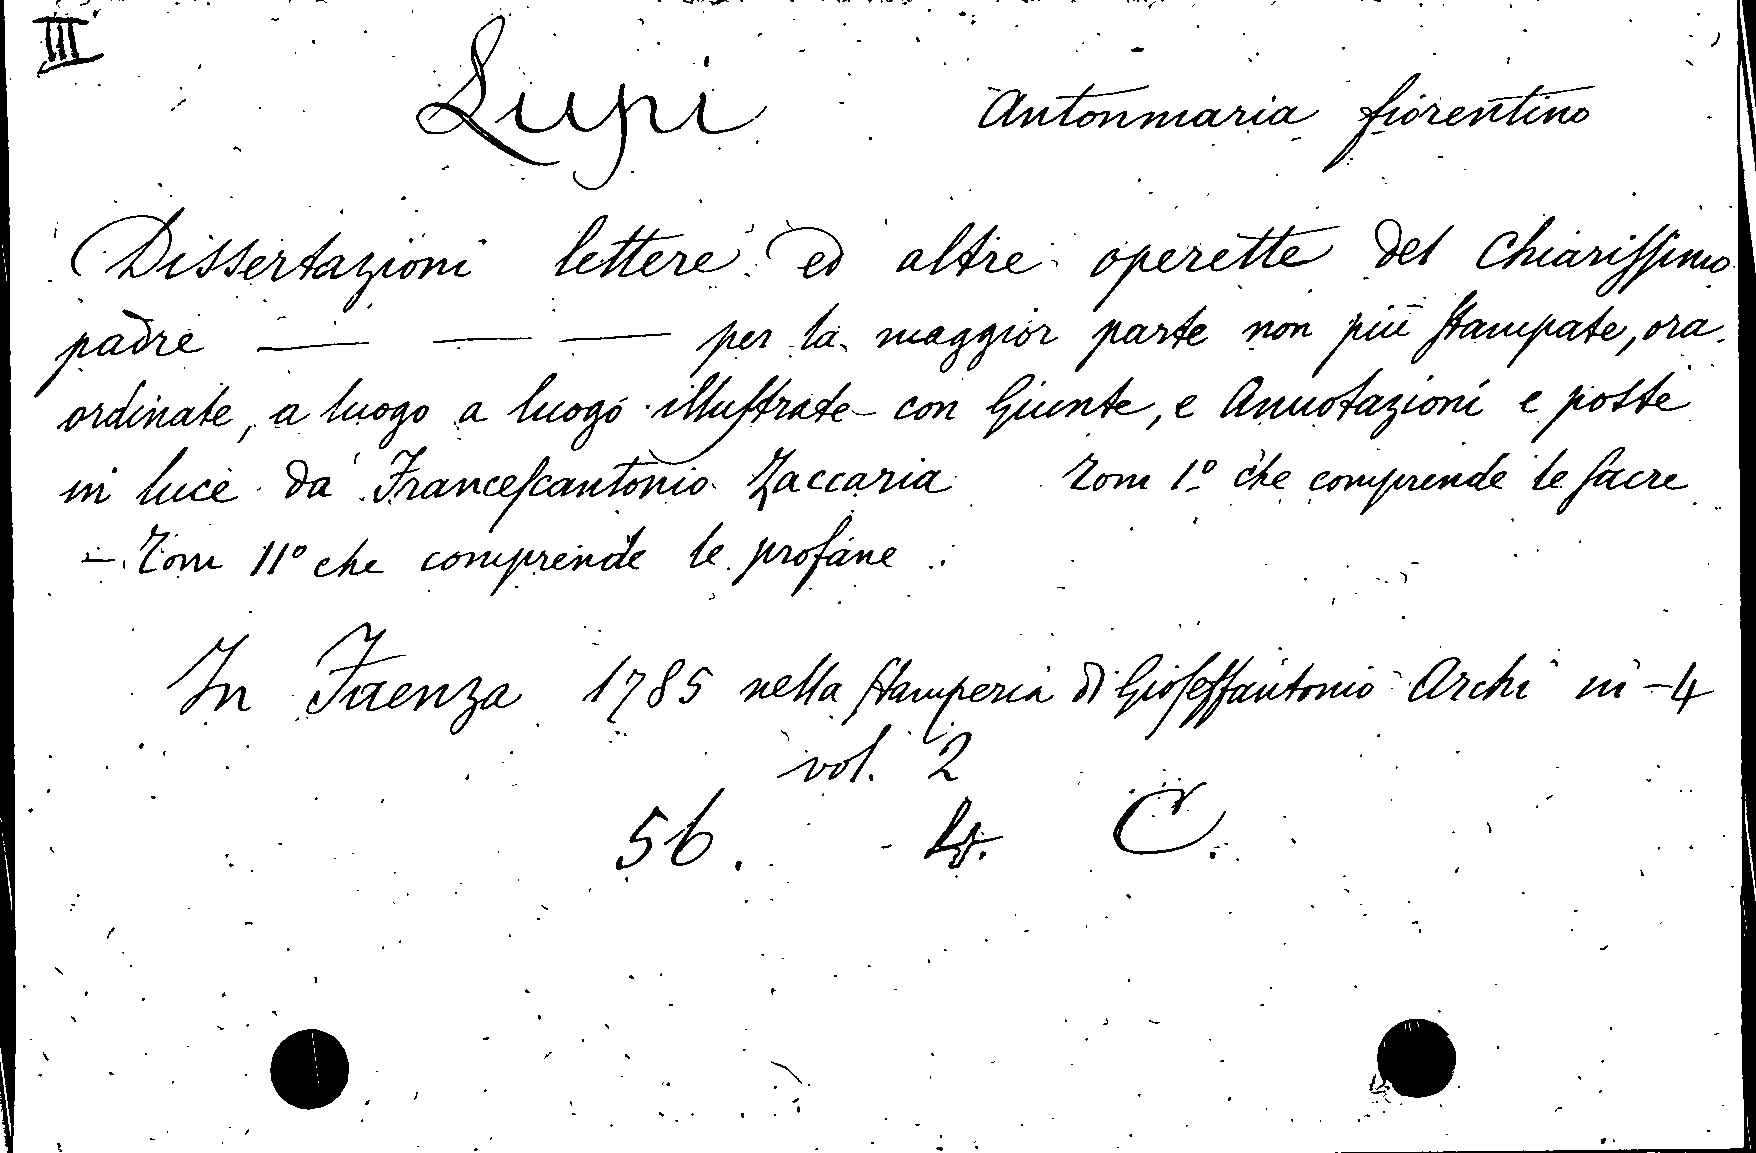 III
Lupi Antonmaria fiorentino
Dissertazioni lettere ed altre operette del Chiarissimo
padre — — — per la maggior parte non più stampate, ora
ordinate, a luogo a luogo illustrate con Giunte, e Annotazioni e poste
in luce da Francescantonio Zaccaria Tom 1º che comprende le sacre
– Tom IIº che comprende le profane
In Faenza 1785 nella stamperia di Gioseffantonio Archi in-4
vol. 2
56. 4. C.